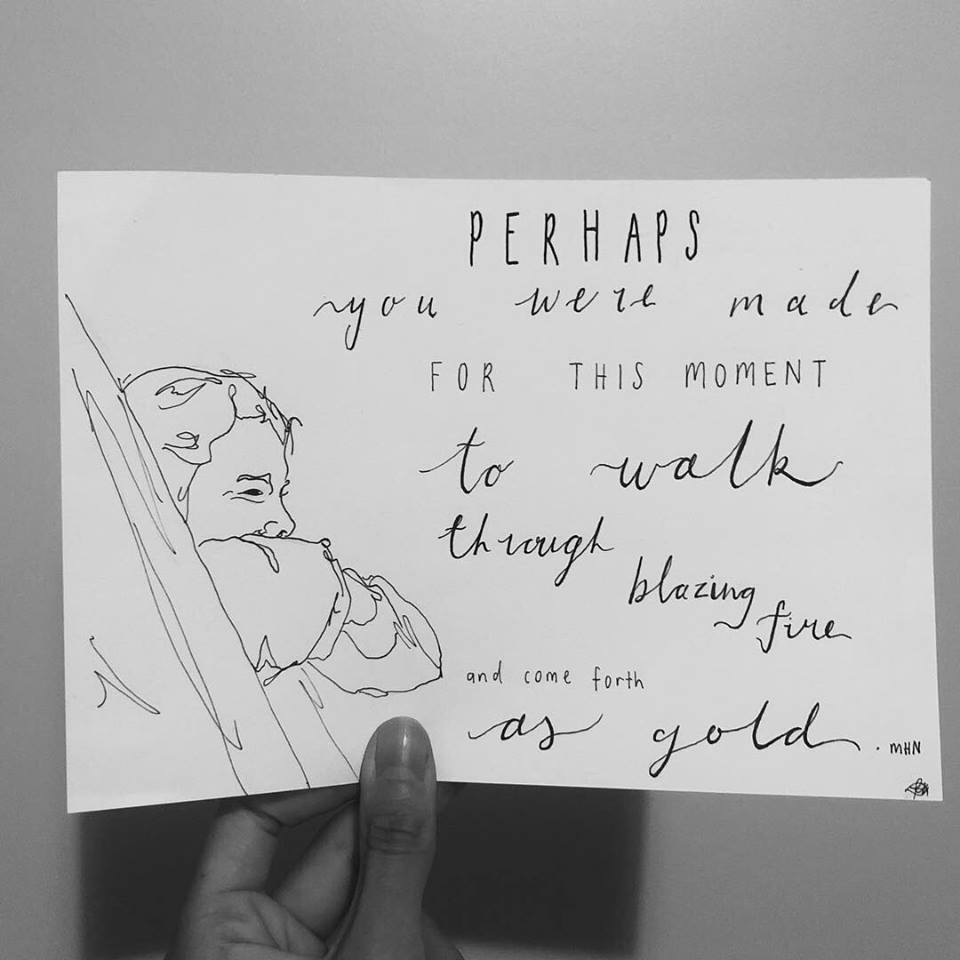 PERHAPS
you were made
FOR THIS MOMENT
to walk
through
blazing
fire
and come forth
as gold. . MHN